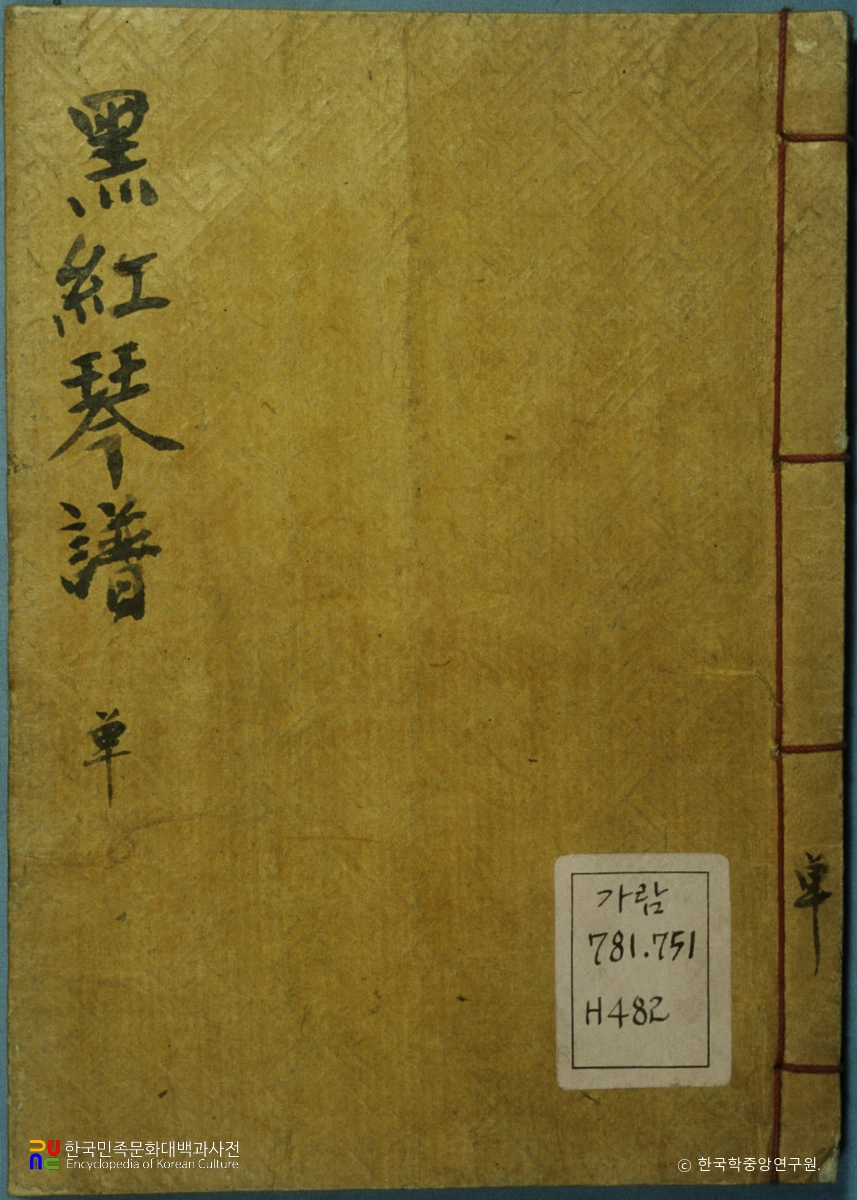 黑紅琴譜
単
単
가람
781.751
H482
한국민족문화대백과사전
Encyclopedia of Korean Culture
© 한국학중앙연구원.